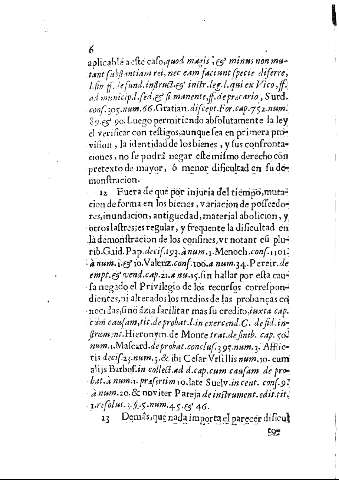 6
aplicable a este caso, quod magis, & minus non mu-
tant substantiam rei, nec eam faciunt specie diferre,
l. fin ff. de fund. instruct. & instr. leg. l. qui ex Vico, ff.
ad municip. l. sed, & si manente, ff. de precario, Surd.
conf. 305. num. 66. Gratian. discept. For. cap. 752. num.
89. & 90. Luego permitiendo absolutamente la ley
el verificar con testigos, aunque sea en primera pro-
vision, la identidad de los bienes, y sus confronta-
ciones, no se podrà negar este mismo derecho con
pretexto de mayor, ò menor dificultad en su de-
monstracion.
12 Fuera de que por injuria del tiempo, muta-
cion de forma en los bienes, variacion de possedo-
res, inundicion, antiguedad, material abolicion, y
otros lastres es regular, y frequente la dificultad en
la demonstracion de los confines, vt notant cù plu-
rib. Guid. Pap. decis. 193. à num. 1. Menoch. conf. 1101.
à num. 1. & 10. Valenz. conf. 100. à num. 34. Pereir. de
empt. & vend. cap. 21. à nu. 15. sin hallar por esta cau-
sa negado el Privilegio de los recursos correspon-
dientes, ni alterados los medios de las probanças co-
nocidas, sino àzia facilitar mas su credito, iuxta cap.
cum causam, tit. de probat. l. in exercend. C. de fid. in-
strument. Hieronim. de Monte trat. de finib. cap. 50.
num. 1. Mascard. de probat. conclus. 395. num. 3. Afflic-
tis decis. 23. num. 3. & ibi Cesar Vrsillis num. 10. cum
alijs Barbos. in collect. ad d. cap. cum causam de pro-
bat. à num. 1. præsertim 10. late Suelv. in cent. conf. 9.
à num. 20. & noviter Pareja de instrument. edit. tit.
1. resolut. 3. §. 5. num. 45. & 46.
13 Demás, que nada importa el parecer dificul